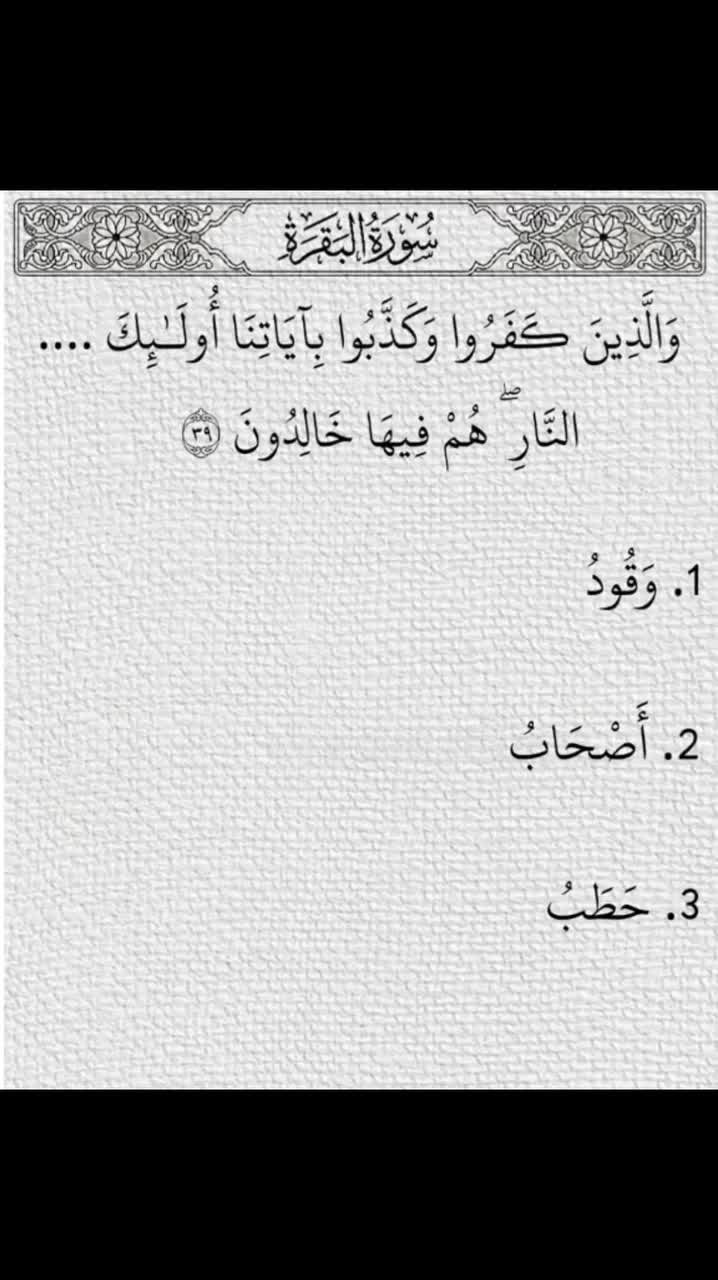 سُورَةُ البَقَرَةِ
وَالَّذِينَ كَفَرُوا وَكَذَّبُوا بِآيَاتِنَا أُولَـٰئِكَ ....
النَّارِ ۖ هُمْ فِيهَا خَالِدُونَ ٣٩
1. وَقُودُ
2. أَصْحَابُ
3. حَطَبُ